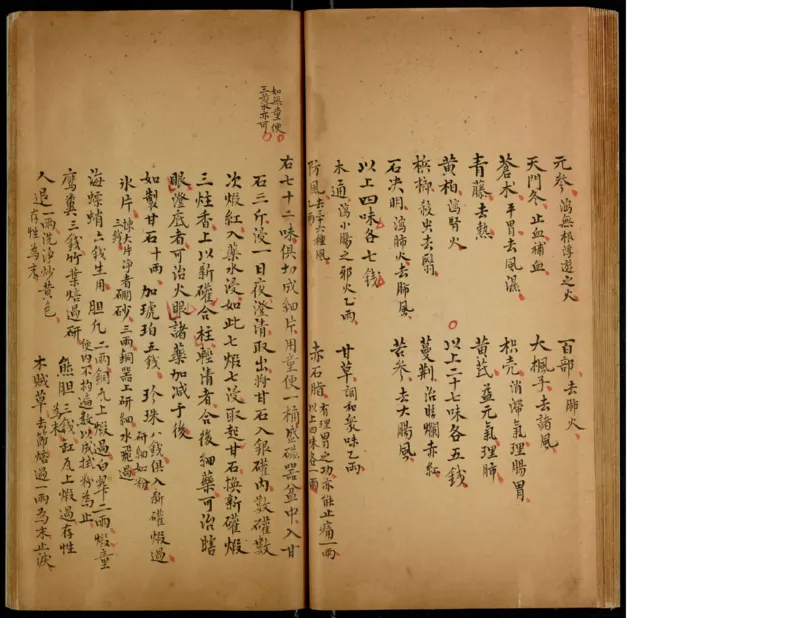 元參 瀉無根浮遊之火 百部 去肺火
天門冬 止血補血 大楓子 去諸風
蒼朮 平胃去風濕 枳壳 消滯氣理腸胃
青藤 去熱 黃芪 益元氣理肺
黃柏 瀉腎火 以上二十七味各五錢
槟榔 殺虫去翳 蔓荆 治眼爛赤紅
石决明 瀉肺火去肺風 苦參 去大腸風
以上四味各七錢
木通 瀉小腸之邪火乙兩 甘草 調和衆味乙兩
防風 去三十六種風乙兩 赤石脂 有理胃之功亦能止痛一兩 以上四味各一兩
右七十二味俱切成細片用童便一桶盛磁器盆中入甘
如無童便
三黃水亦可
石三斤浸一日夜澄清取出將甘石入銀礶內數礶數
次煅紅入藥水浸如此七煅七浸取起甘石換新礶煅
三炷香上以新礶合柱輕清者合後細藥可治瞎
眼澄底者可治火眼諸藥加減于後
如製甘石十兩 加琥珀五錢 珍珠 八錢俱入新礶煅過研細如粉
氷片 三錢 揀大片淨者硼砂 三兩銅器上研細水飛過
海螵蛸 六錢生用 胆凡 二兩銅凡上煅過白硯 二兩煅童便內不拘遍數以成拭粉為止
鷹糞 三錢竹葉焙過研為末 熊胆 三錢缸瓦上煅過存性
人退 一兩洗淨炒黃色存性為末 木賊草 去節焙過一兩為末止淚